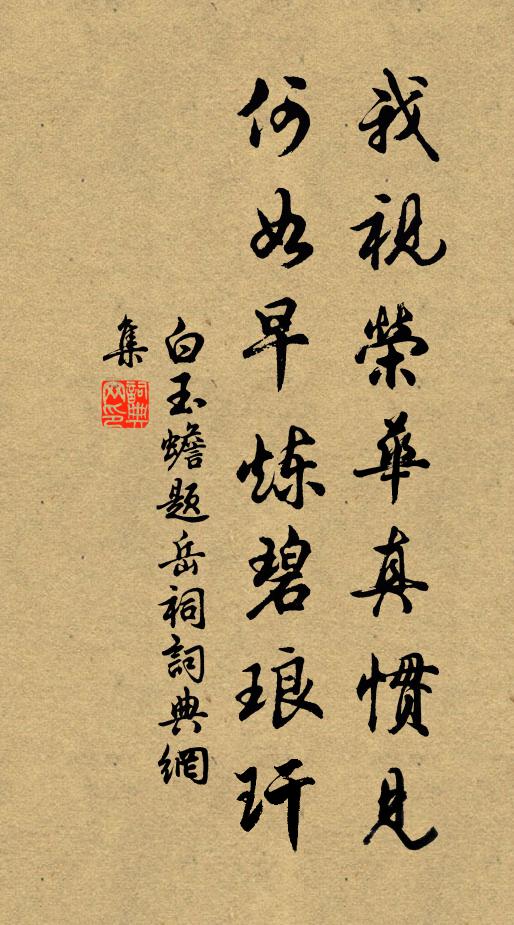 我視榮華真慣見
何如早炼碧琅玕
白玉蟾题岳祠詞典網
集
詞典網印